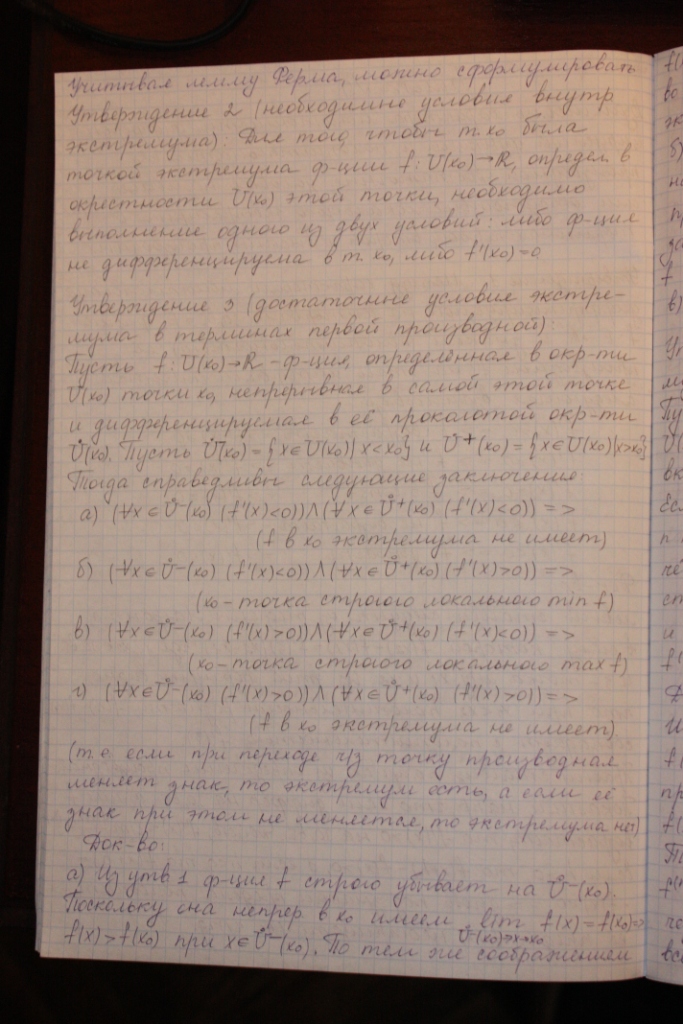 Учитывая лемму Ферма, можно сформулировать
Утверждение 2 (необходимые условия внутр
экстремума). Для того, чтобы т. x₀ была
точкой экстремума ф-ции f: U(x₀)→ℝ, определ. в
окрестности U(x₀) этой точки, необходимо
выполнение одного из двух условий: либо ф-ция
не дифференцируема в т. x₀, либо f'(x₀)=0
Утверждение 3 (достаточные условия экстре-
мума в терминах первой производной):
Пусть f: U(x₀)→ℝ - ф-ция, определённая в окр-ти
U(x₀) точки x₀, непрерывная в самой этой точке
и дифференцируемая в её проколотой окр-ти
Ů(x₀). Пусть Ů⁻(x₀) = {x∈U(x₀)| x<x₀} и Ů⁺(x₀) = {x∈U(x₀)|x>x₀}
Тогда справедливы следующие заключения:
а) (∀x∈Ů⁻(x₀) (f'(x)<0))∧(∀x∈Ů⁺(x₀) (f'(x)<0)) =>
(f в x₀ экстремума не имеет)
б) (∀x∈Ů⁻(x₀) (f'(x)<0))∧(∀x∈Ů⁺(x₀) (f'(x)>0)) =>
(x₀ - точка строгого локального min f)
в) (∀x∈Ů⁻(x₀) (f'(x)>0))∧(∀x∈Ů⁺(x₀) (f'(x)<0)) =>
(x₀ - точка строгого локального max f)
г) (∀x∈Ů⁻(x₀) (f'(x)>0))∧(∀x∈Ů⁺(x₀) (f'(x)>0)) =>
(f в x₀ экстремума не имеет).
(т.е. если при переходе ч/з точку производная
меняет знак, то экстремум есть, а если её
знак при этом не меняется, то экстремума нет)
Док-во:
а) Из утв. 1 ф-ция f строго убывает на Ů⁻(x₀).
Поскольку она непрер. в x₀ имеем lim f(x) = f(x₀) =>
Ů⁻(x₀)∋x→x₀
f(x) > f(x₀) при x∈Ů⁻(x₀). По тем же соображениям